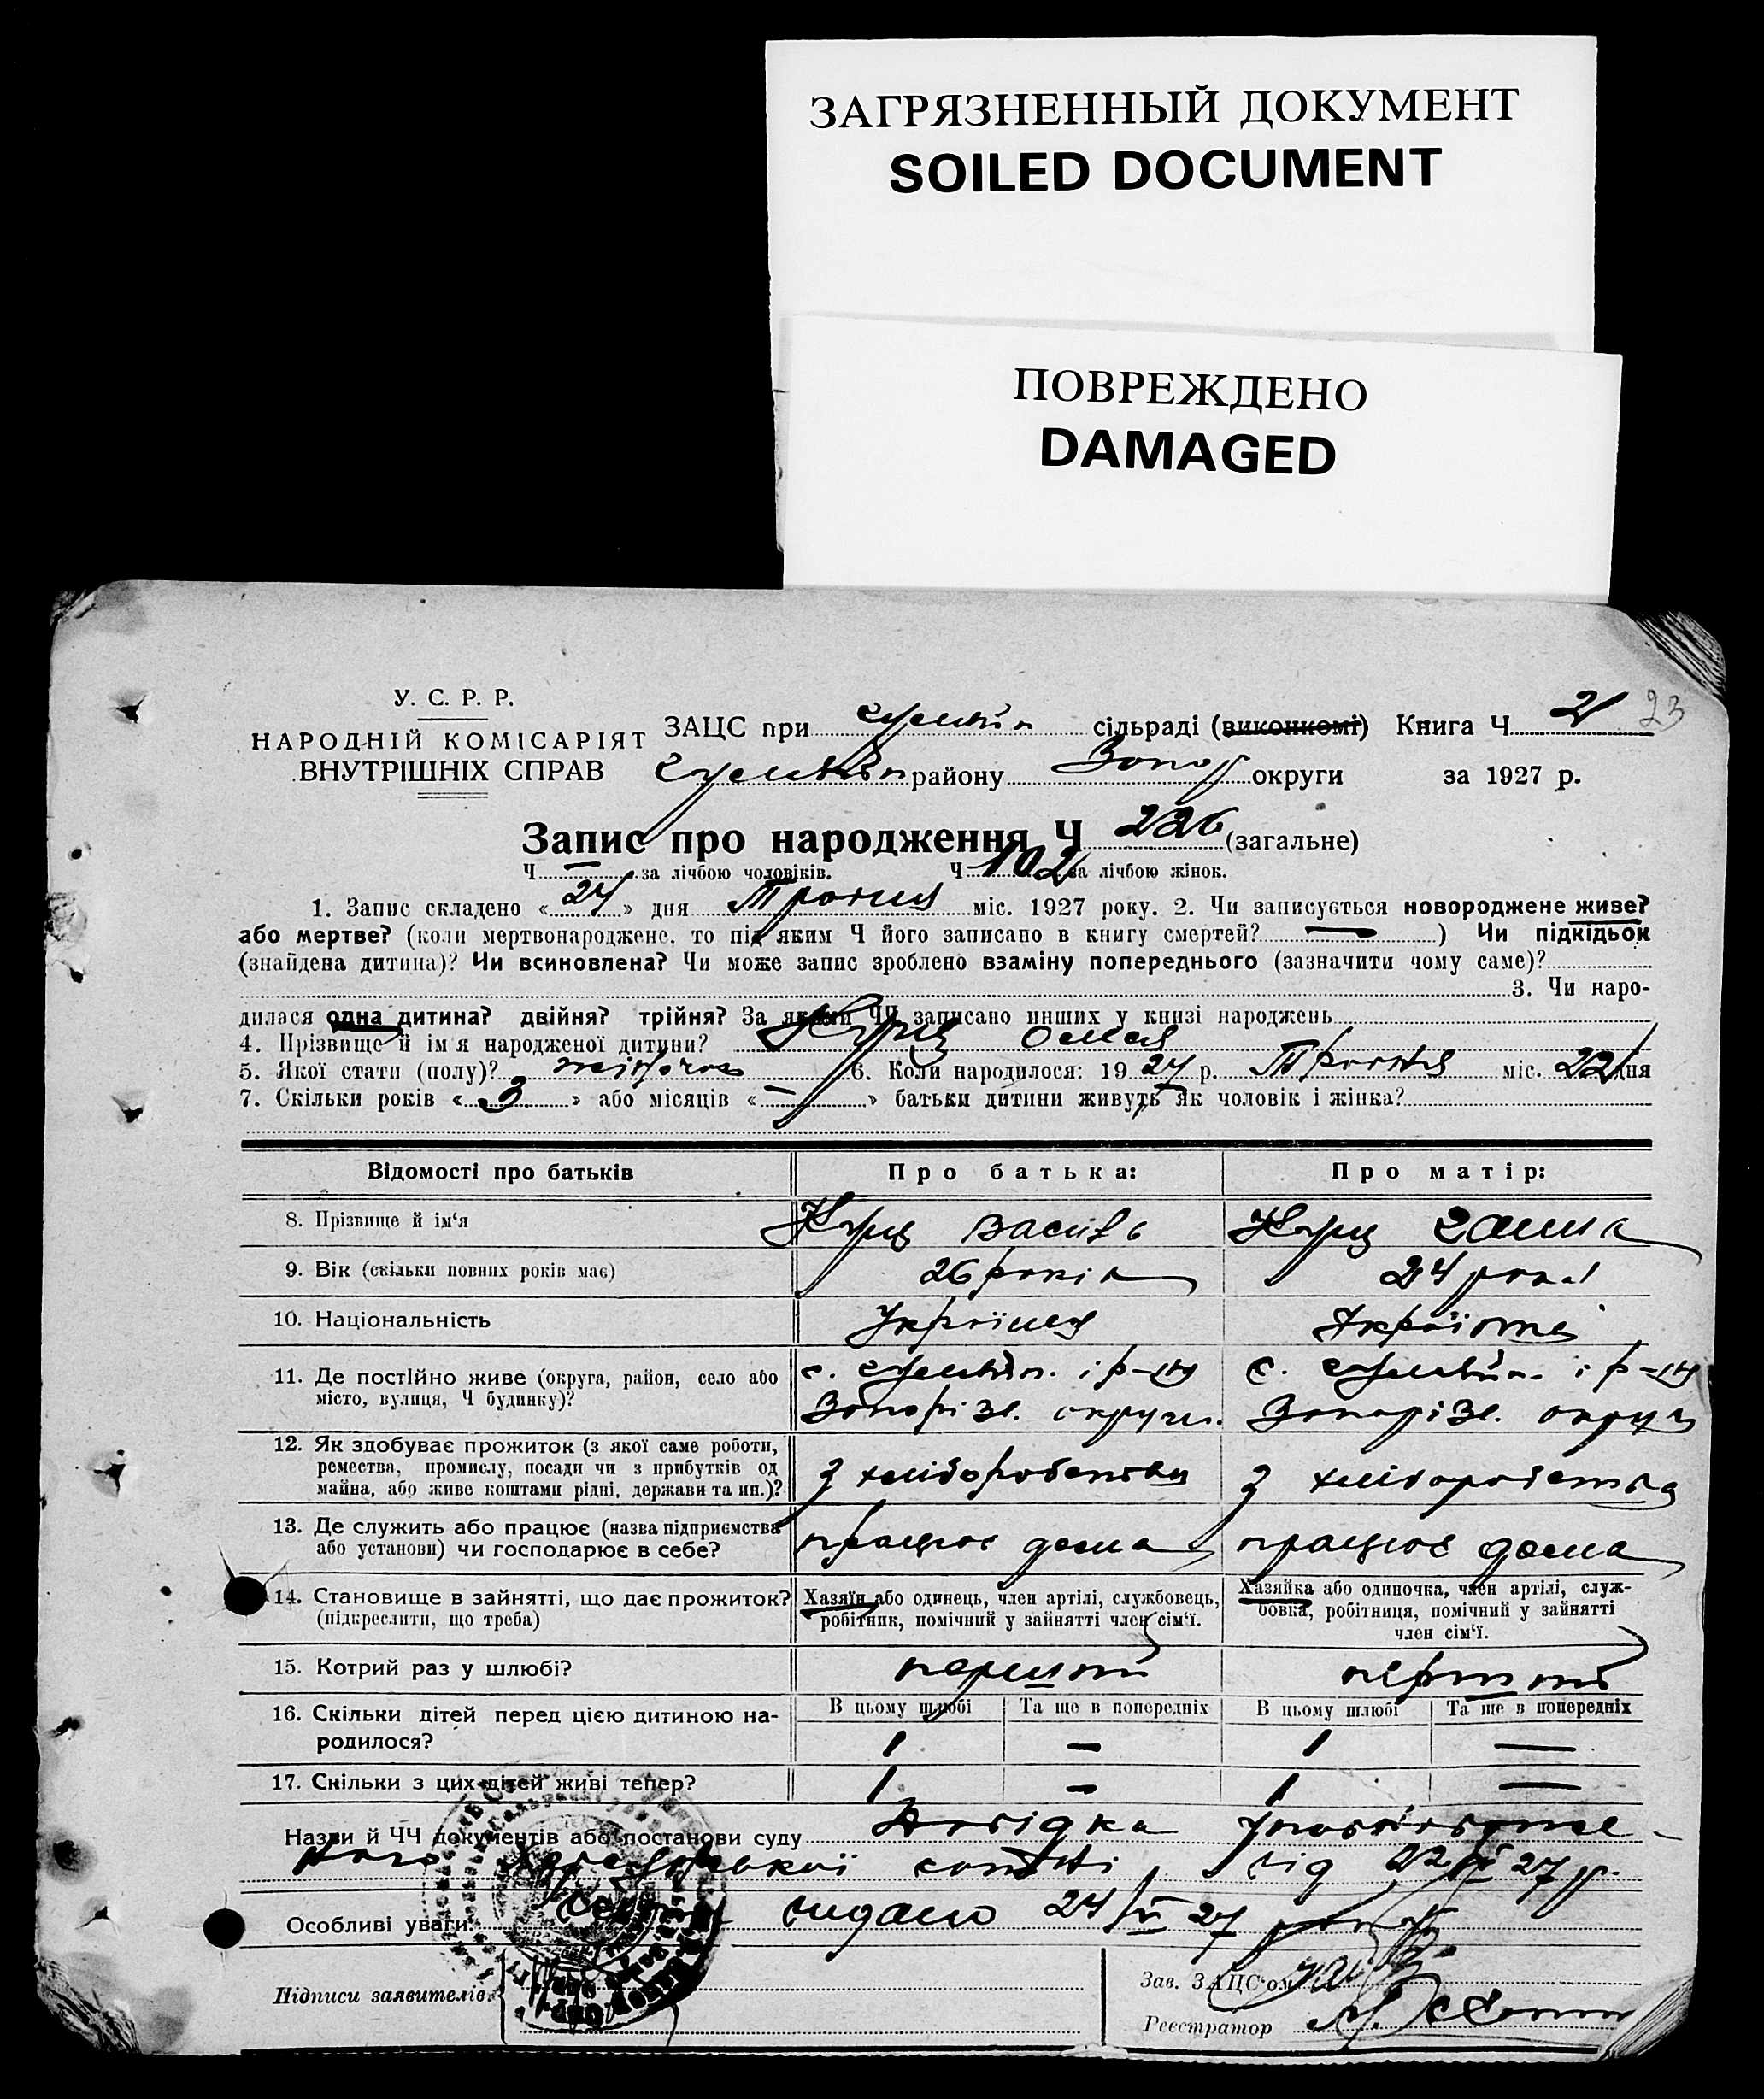 ЗАГРЯЗНЕННЫЙ ДОКУМЕНТ
SOILED DOCUMENT
ПОВРЕЖДЕНО
DAMAGED
У. С. Р. Р.
НАРОДНІЙ КОМІСАРІЯТ
ВНУТРІШНІХ СПРАВ
ЗАЦС при сільраді (виконкомі) Книга Ч 2 23
району Запор округи за 1927 р.
Запис про народження Ч 226 (загальне)
Ч — за лічбою чоловіків. Ч 102 за лічбою жінок.
1. Запис складено «24» дня Травня міс. 1927 року. 2. Чи записується новороджене живе?
або мертве? (коли мертвонароджене, то під яким Ч його записано в книгу смертей? —) Чи підкідьок
(знайдена дитина)? Чи всиновлена? Чи може запис зроблено взаміну попереднього (зазначити чому саме)?
3. Чи наро-
дилася одна дитина? двійня? трійня? За якими ЧЧ записано инших у книзі народжень
4. Прізвище й ім'я народженої дитини? Куц
5. Якої стати (полу)? жіночої 6. Коли народилося: 1927 р. Травня міс. 22 дня
7. Скільки років «3» або місяців «—» батьки дитини живуть як чоловік і жінка?
Відомості про батьків Про батька: Про матір:
8. Прізвище й ім'я Куц Василь Куц Ганна
9. Вік (скільки повних років має) 26 років 24 роки
10. Національність Українец Українка
11. Де постійно живе (округа, район, село або місто, вулиця, Ч будинку)? с. і р-ну Запорізь. округи с. і р-ну Запорізь. округи
12. Як здобуває прожиток (з якої саме роботи,
ремества, промислу, посади чи з прибутків од
майна, або живе коштами рідні, держави та ин.)? З хліборобства З хліборобства
13. Де служить або працює (назва підприємства
або установи) чи господарює в себе? працює дома працює дома
14. Становище в зайнятті, що дає прожиток?
(підкреслити, що треба)
Хазяїн або одинець, член артілі, службовець,
робітник, помічний у зайнятті член сім'ї.
Хазяйка або одиночка, член артілі, служ-
бовка, робітниця, помічний у зайнятті
член сім'ї.
15. Котрий раз у шлюбі? перший перший
16. Скільки дітей перед цією дитиною на-
родилося?
В цьому шлюбі Та ще в попередніх В цьому шлюбі Та ще в попередніх
1 — 1 —
17. Скільки з цих дітей живі тепер? 1 — 1 —
Назви й ЧЧ документів або постанови суду Довідка уповноваже-
ного сотні від 22/V 27 р.
Особливі уваги: видано 24/V 27
Підписи заявителів:
Зав. ЗАЦС'ом
Реєстратор